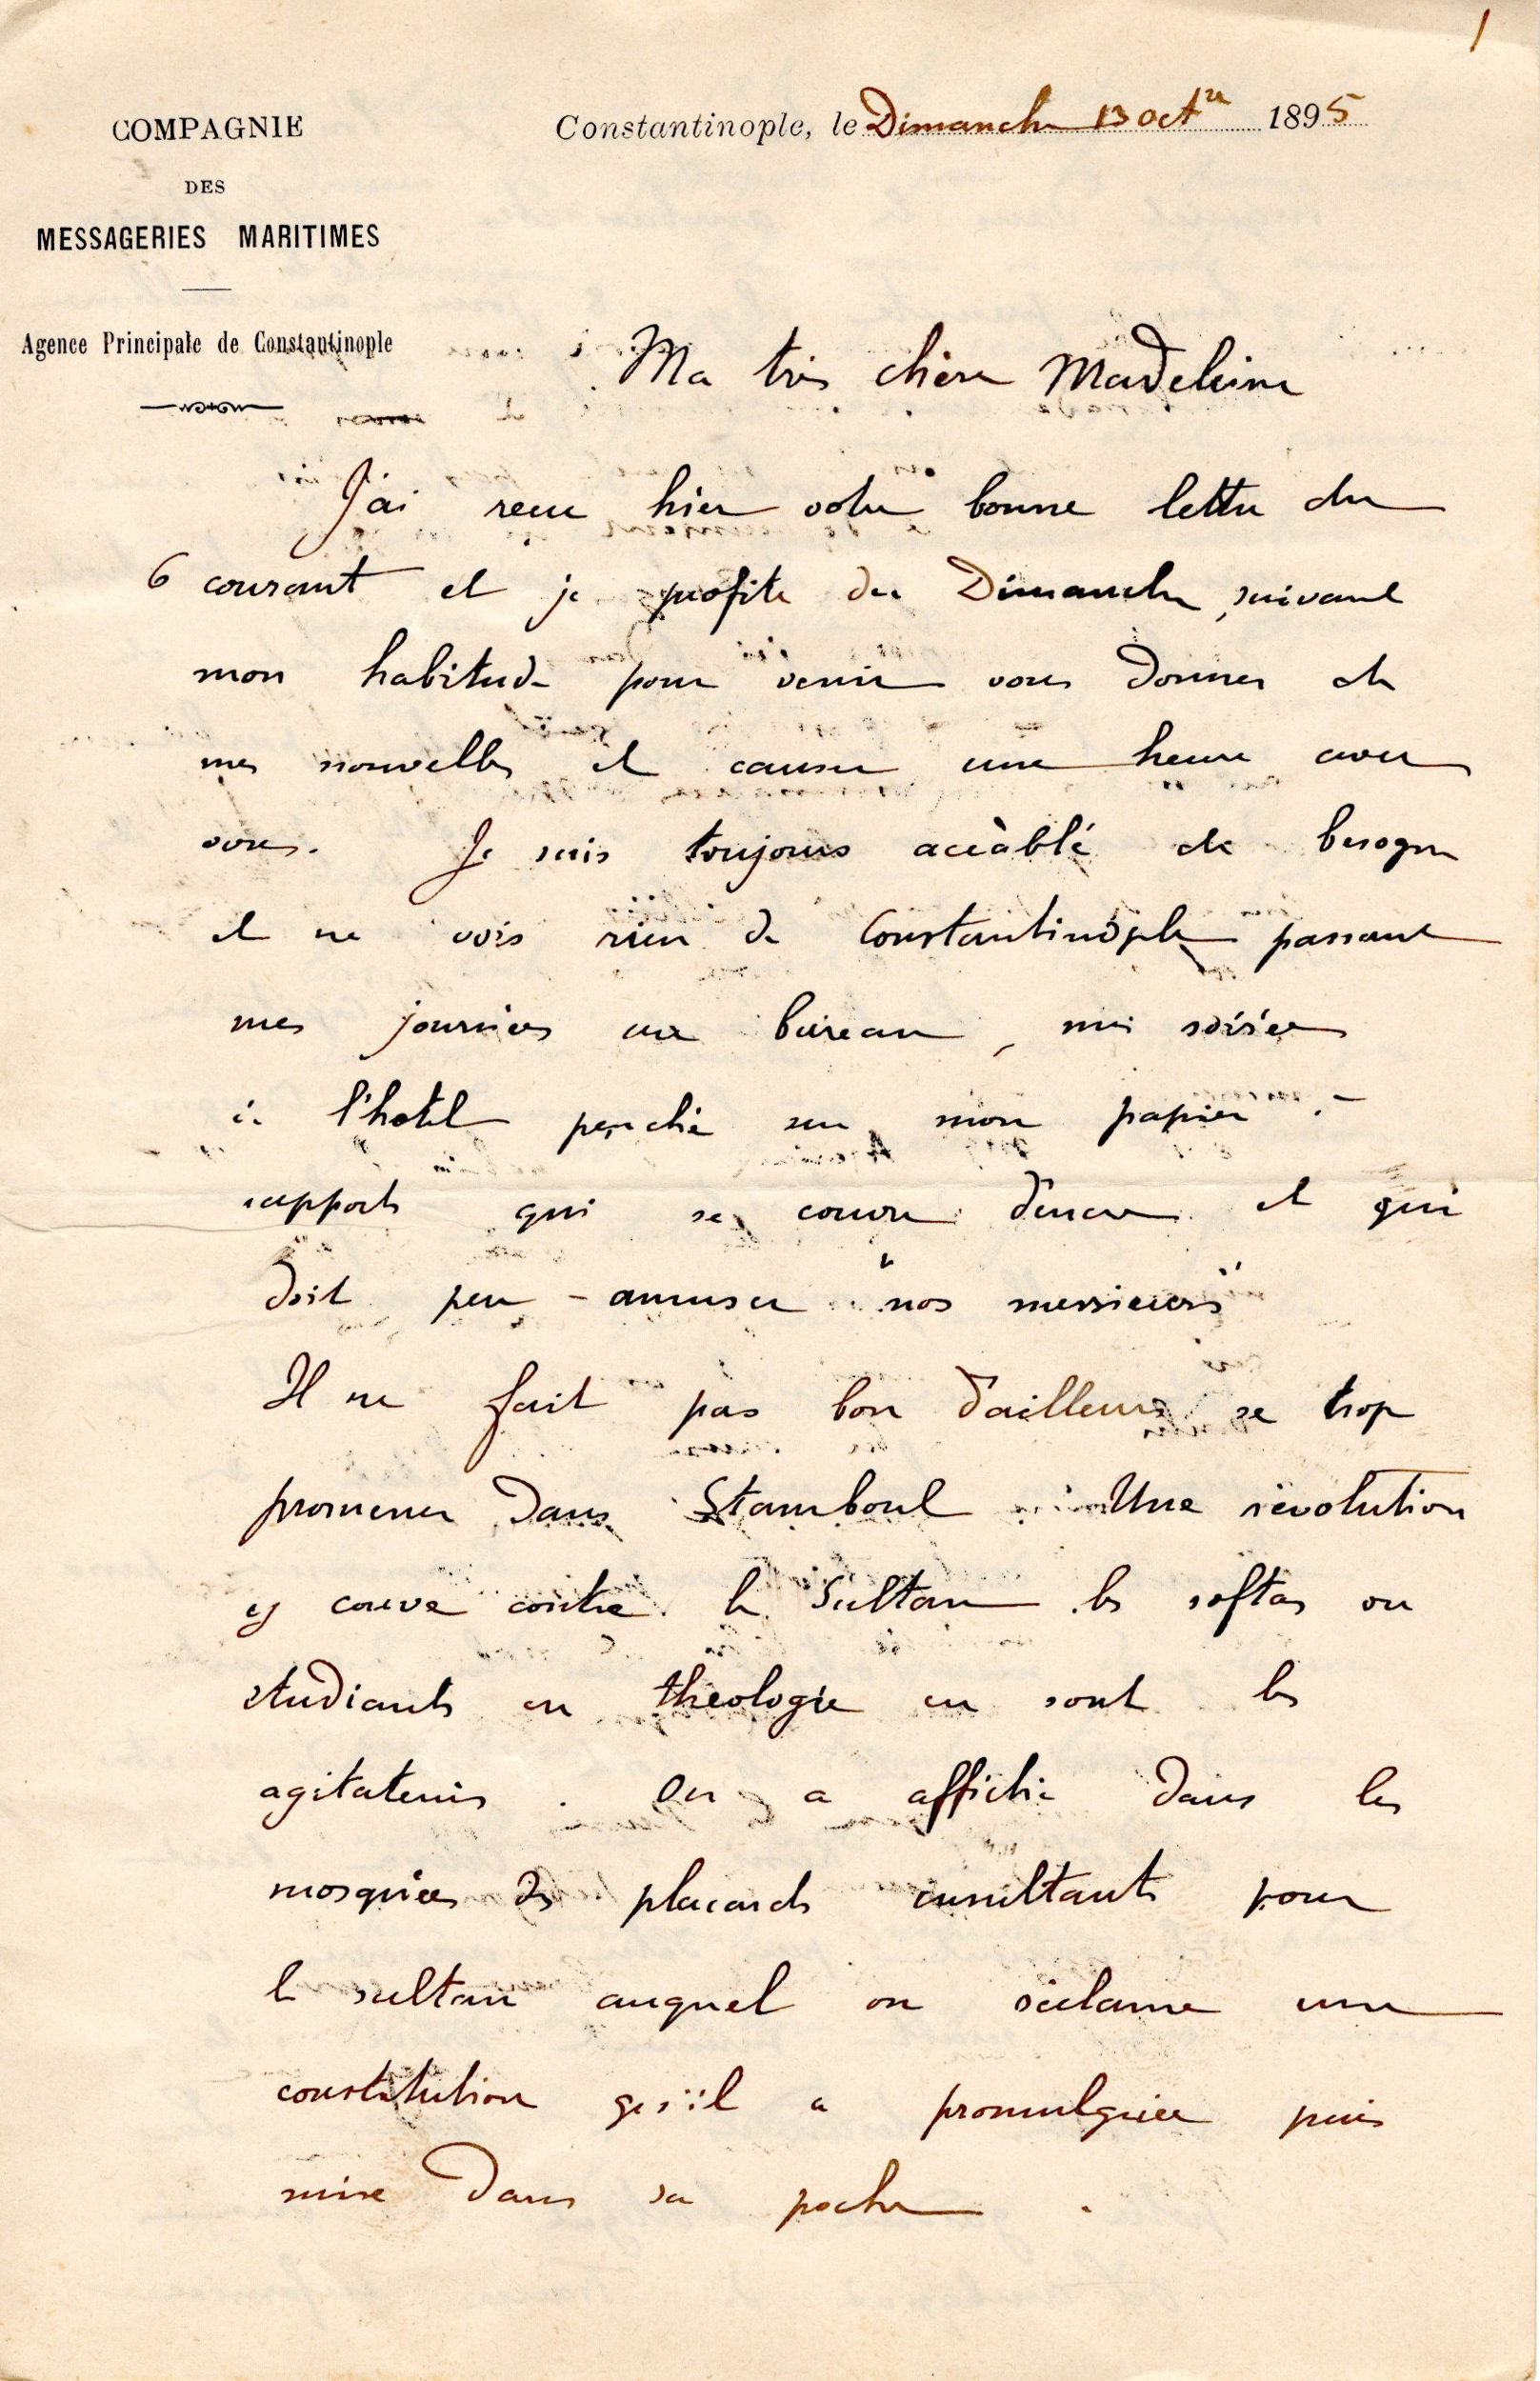 1
COMPAGNIE
DES
MESSAGERIES MARITIMES
Agence Principale de Constantinople
Constantinople, le Dimanche 13 oct^re 1895
Ma très chère Madeleine
J'ai reçu hier votre bonne lettre du
6 courant et je profite du Dimanche, suivant
mon habitude pour venir vous donner de
mes nouvelles et causer une heure avec
vous. Je suis toujours accablé de besogne
et ne vois rien de Constantinople passant
mes journées au bureau, mes soirées
à l'hotel penché sur mon papier à
rapports qui se couvre d'encre et qui
doit peu - amuser "nos messieurs"
Il ne fait pas bon d'ailleurs se trop
promener dans Stamboul. Une révolution
y couve contre le Sultan les softas ou
étudiants en théologie en sont les
agitateurs. On a affiché dans les
mosquées des placards insultants pour
le sultan auquel on réclame une
constitution qu'il a promulguée puis
mise dans sa poche.